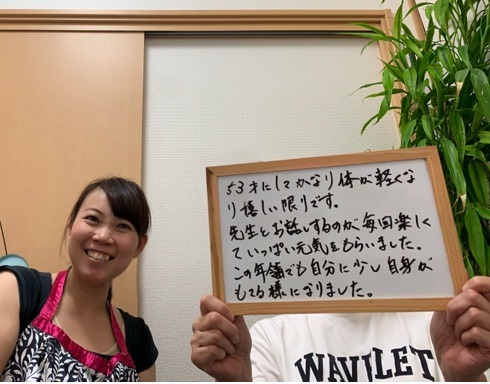 53才にしてかなり体が軽くな
り嬉しい限りです。
先生とお話しするのが毎回楽しく
ていっぱい元気をもらいました。
この年齢でも自分に少し自身が
もてる様になりました。
WAVELET